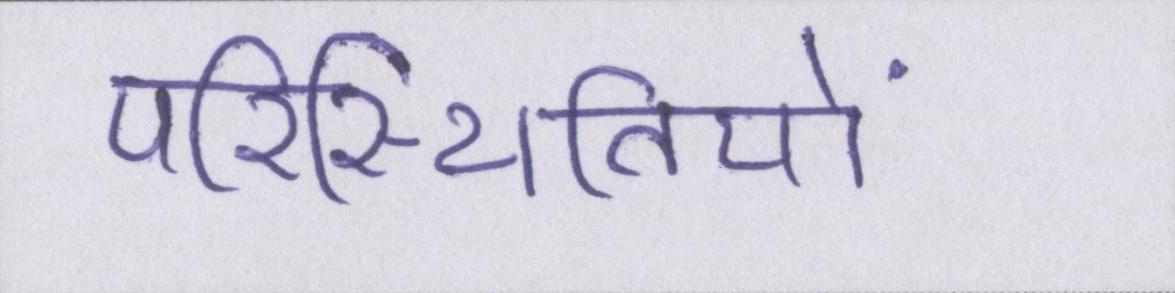 परिस्थितियों